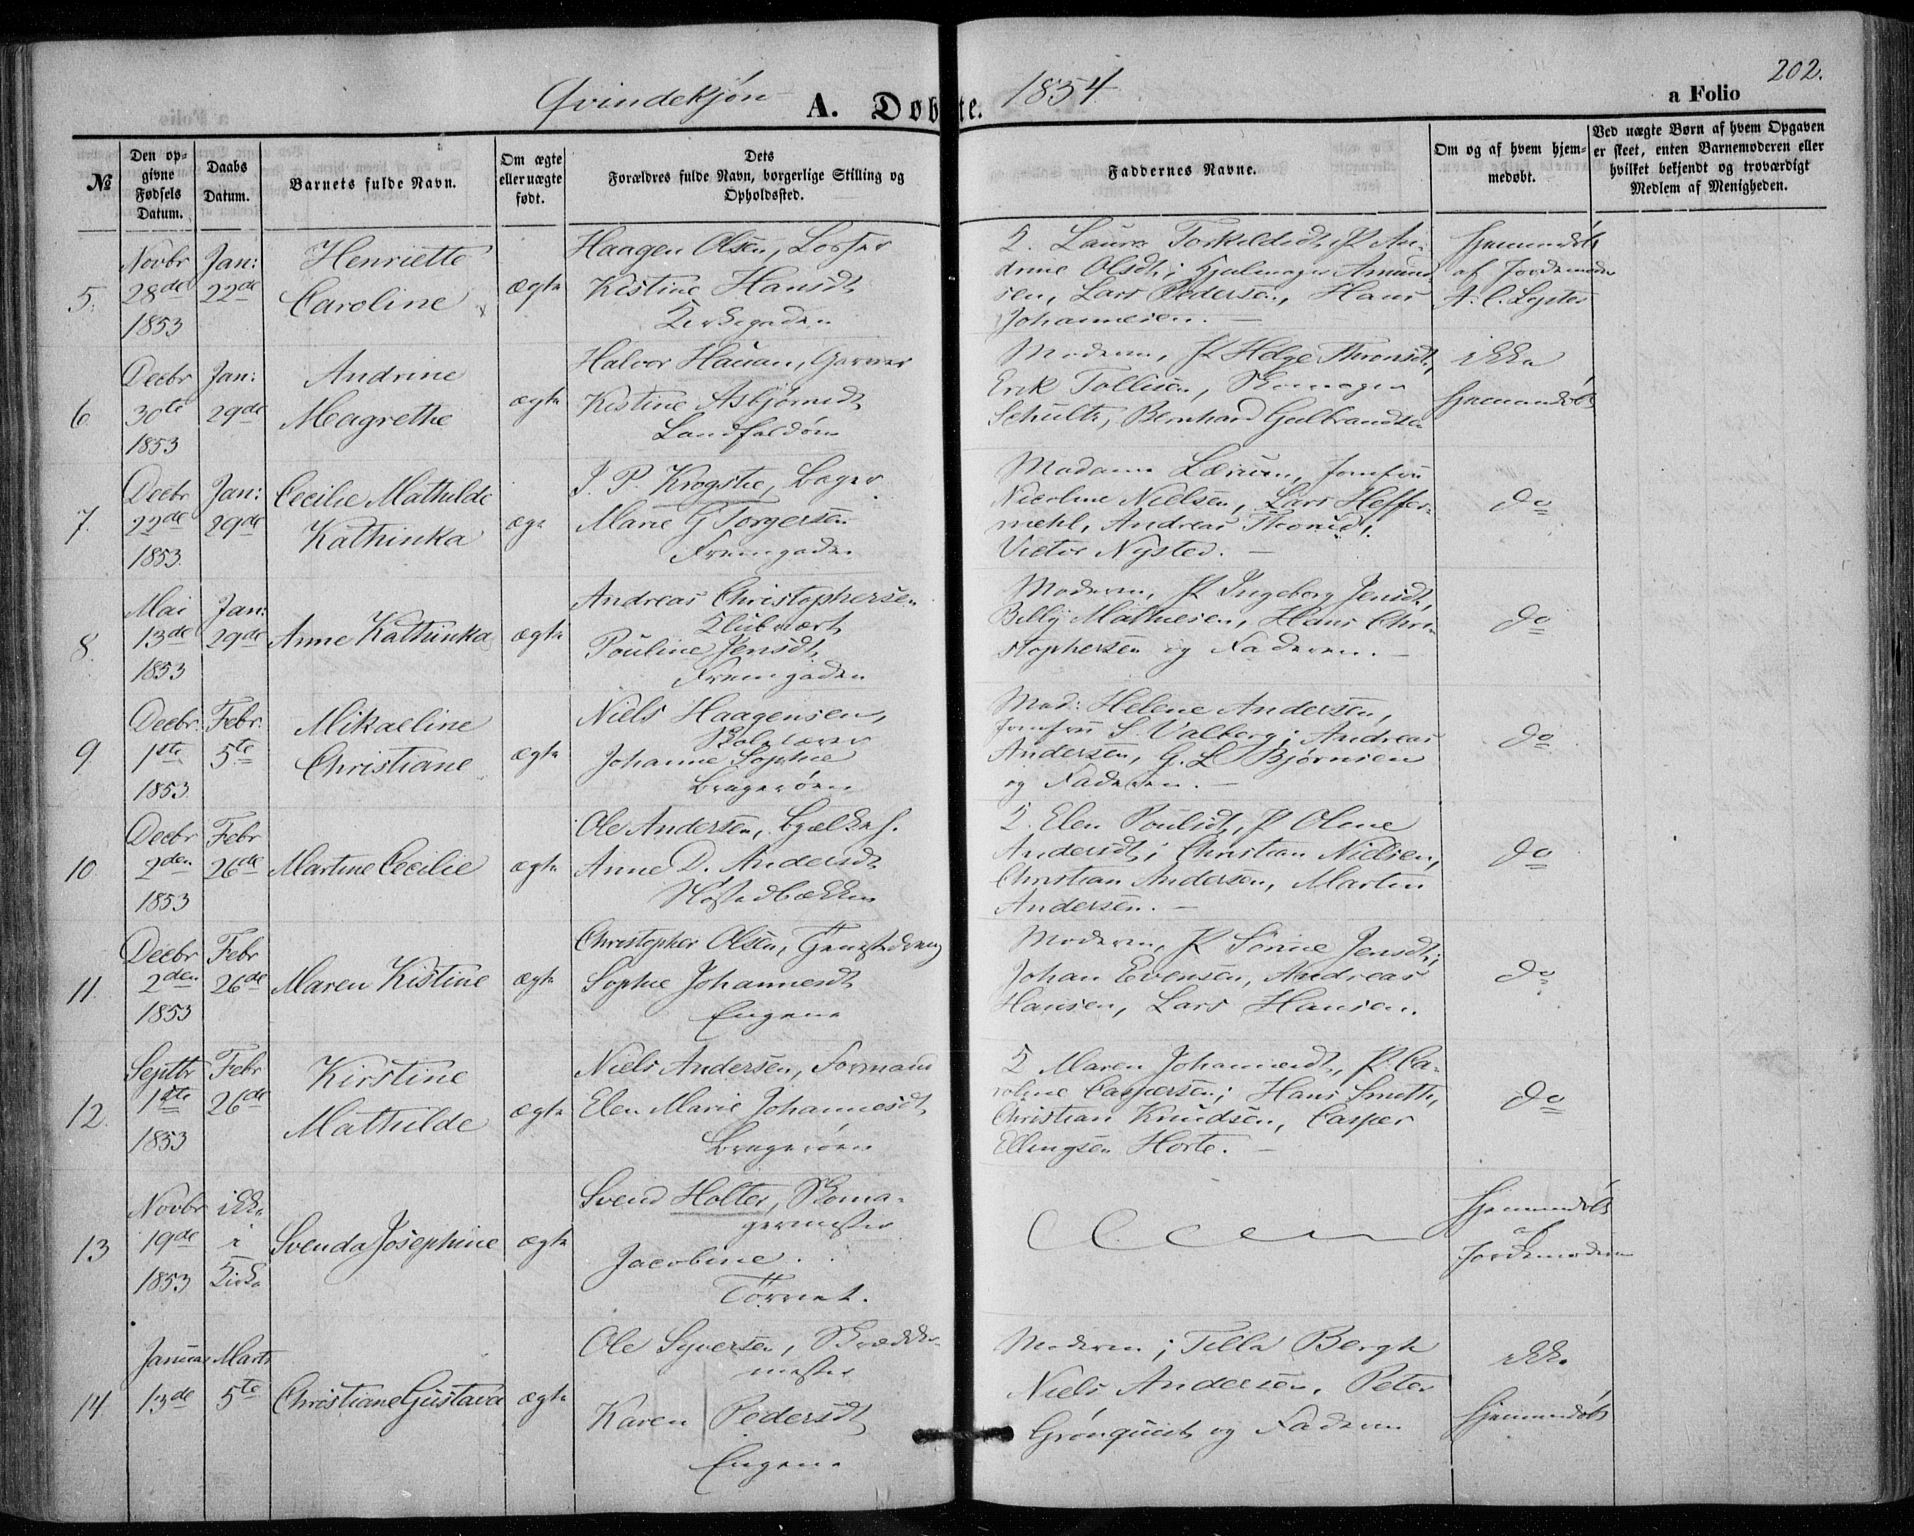 Qvindekjøn A. Døbte. 1854 a Folio 202.
№ | Den opgivne Fødsels Datum. | Daabs Datum. | Barnets fulde Navn. | Om ægte eller uægte født. | Dets Forældres fulde Navn, borgerlige Stilling og Opholdssted. | Faddernes Navne. | Om og af hvem hjemmedøbt. | Ved uægte Børn af hvem Opgaven er skeet, enten Barnemoderen eller hvilket bekjendt og troværdigt Medlem af Menigheden.
5.
Novbr
28de
1853
Jan:
22de
Henriette
Caroline
ægte
Haagen Olsen,
Kistine Hansdt
Kirkegaden
K. Laura Torkeldsdt, P An-
drine Olsdt; Hjulmager Amund-
sen, Lars Pedersen, Hans
Johannesen. —
Hjemmedøbt
af Jordemoder
A. C. Lyster
6.
Decbr
30te
1853
Jan:
29de
Andrine
Magrethe
ægte
Halvor Hauan, Garver
Kistine Asbjørnsdt
Landfaldøen
Moderen, P Helge Thronsdt,
Erik Tollisen, Skomager
Schultz, Bernhard Gulbrandsen
ikke
hjemmedøbt
7.
Decbr
22de
1853.
Jan:
29de
Cecilie Mathilde
Kathinka
ægt
J. P. Krogstie, Bager
Marie G Torgersen
Fremgaden
Madame Lærum, Jomfru
Nicoline Nielsen, Lars Heffer-
mehl, Andreas
Victor Nysted. —
do
8.
Mai
13de
1853
Jan:
29de
Anne Kathinka
ægte
Andreas Christophersen
Klubvært
Pouline Jensdt,
Fremgaden
Moderen, P Ingeborg Jensdt,
Billy Mathiesen, Hans Chri-
stophersen og Faderen. —
do
9
Decbr.
1ste
1853
Febr.
5te
Mikaeline
Christiane
ægte
Niels Haagensen,
Johanne Sophie
Bragerøen
Mad: Helene Andersen,
Jomfru S. Valberg; Andreas
Andersen, G. L Bjørnsen
og Faderen. —
do
10
Decbr
2den
1853
Febr
26de
Martine Cecilie
ægte
Ole Andersen,
Anne D. Andersdt
Høstedbækken
K. Elen Poulsdt, P Oline
Andersdt; Christian Nielsen,
Christian Andersen, Martin
Andersen. —
do
11.
Decbr
2den
1853
Febr
26de
Maren Kistine
ægte
Christopher Olsen, Tjenestedreng
Sophie Johannesdt
Engene
Moderen, P Sørine Jensdt;
Johan Evensen, Andreas
Hansen, Lars Hansen.
do
12.
Septbr
1ste
1853
Febr
26de
Kirstine
Mathilde
ægte
Niels Andersen, Formand
Elen Marie Johannesdt,
Bragerøen
K Maren Johannesdt, P. Ca-
roline Caspersen; Hans Smette,
Christian Knudsen, Casper
Ellingsen Horte. —
do
13
Novbr
19de
1853
ikke
i
Kirke
Svenda Josephine
ægte
Svend Holter, Skoma-
germester
Jacobine.
Torvet.
Hjemmedøbt
af
Jordemoderen
14
Januar
13de
Marts
5te
Christiane Gustava
ægte
Ole Syversen, Skrædder-
mester
Karen Pedersdt
Engene
Moderen; Tilla Bergh
Niels Andersen, Peter
Grönqueist og Faderen
ikke
hjemmedøbt